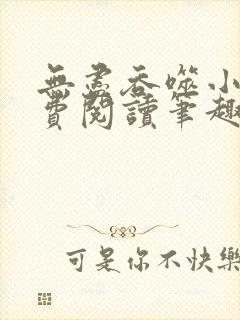 無盡吞噬小
費閱讀筆趣
可是你不快樂